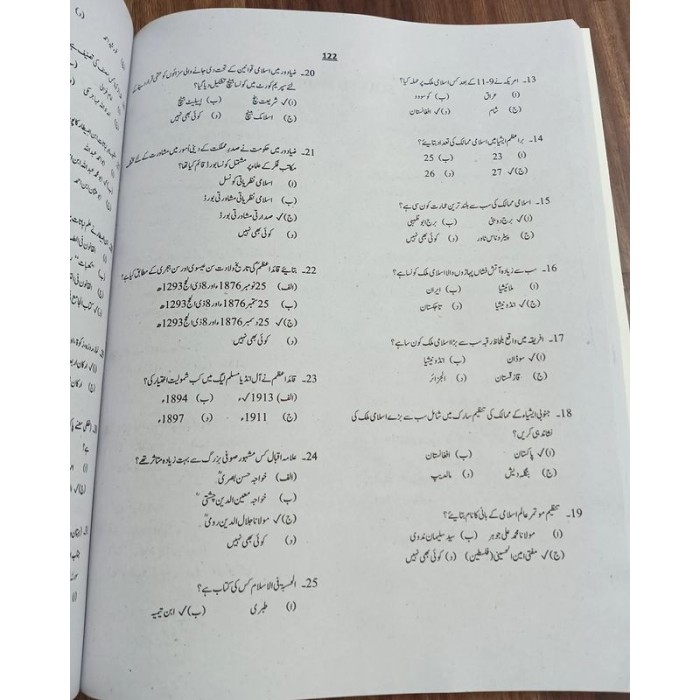 122
13۔ امریکہ نے 9-11 کے بعد کس اسلامی ملک پر حملہ کیا؟
(ا) عراق (ب) کوسووہ
(ج) شام (د)✓ افغانستان
14۔ براعظم ایشیا میں اسلامی ممالک کی تعداد بتایئے؟
(ا) 23 (ب) 25
(ج)✓ 27 (د) 26
15۔ اسلامی ممالک کی سب سے بلند ترین عمارت کون سی ہے؟
(ا)✓ برج دوبئی (ب) برج ابوظہبی
(ج) پیٹروناس ٹاور (د) کوئی بھی نہیں
16۔ سب سے زیادہ آتش فشاں پہاڑوں والا اسلامی ملک کونسا ہے؟
(ا) ملائیشیا (ب) ایران
(ج)✓ انڈونیشیا (د) تاجکستان
17۔ افریقہ میں واقع بلحاظ رقبہ سب سے بڑا اسلامی ملک کون سا ہے؟
(ا)✓ سوڈان (ب) انڈونیشیا
(ج) قازقستان (د) الجزائر
18۔ جنوبی ایشیاء کے ممالک کی تنظیم سارک میں شامل سب سے بڑے اسلامی ملک کی
نشاندہی کریں؟
(ا)✓ پاکستان (ب) افغانستان
(ج) بنگلہ دیش (د) مالدیپ
19۔ تنظیم موتمر عالم اسلامی کے بانی کا نام بتایئے؟
(ا) مولانا محمد علی جوہر (ب) سید سلیمان ندوی
(ج)✓ مفتی امین الحسینی (فلسطین) (د) کوئی بھی نہیں
20۔ ضیاء دور میں اسلامی قوانین کے تحت دی جانے والی سزاؤں کو
لئے سپریم کورٹ میں کونسا بینچ تشکیل دیا گیا؟
(ا)✓ شریعت بینچ (ب) اپیلیٹ بینچ
(ج) اسلامک بینچ (د) کوئی بھی نہیں
21۔ ضیاء دور میں حکومت نے صدر مملکت کے دینی امور میں مشاورت کے لئے مختلف
مکاتب فکر کے علماء پر مشتمل کونسا بورڈ قائم کیا تھا؟
(ا) اسلامی نظریاتی کونسل
(ب) اسلامی نظریاتی مشاورتی بورڈ
(ج)✓ صدارتی مشاورتی بورڈ
(د) کوئی بھی نہیں
22۔ بتایئے قائداعظم کی تاریخ ولادت سن عیسوی اور سن ہجری کے مطابق کیا ہے؟
(الف) 25 نومبر 1876ء اور 8 ذی الحج 1293ھ
(ب) 25 ستمبر 1876ء اور 8 ذی الحج 1293ھ
(ج)✓ 25 دسمبر 1876ء اور 8 ذی الحج 1293ھ
(د) کوئی بھی نہیں
23۔ قائداعظم نے آل انڈیا مسلم لیگ میں کب شمولیت اختیار کی؟
(الف) 1913✓ء (ب) 1894ء
(ج) 1911ء (د) 1897ء
24۔ علامہ اقبال کس مشہور صوفی بزرگ سے بہت زیادہ متاثر تھے؟
(الف) خواجہ حسن بصریؒ
(ب) خواجہ معین الدین چشتیؒ
(ج)✓ مولانا جلال الدین رومیؒ
(د) کوئی بھی نہیں
25۔ الحسبۃ فی الاسلام کس کی کتاب ہے؟
(ا) طبری (ب)✓ ابن تیمیہ